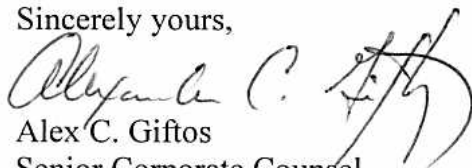 Sincerely yours,
Alexander C. Giftos
Alex C. Giftos
Senior Corporate Counsel